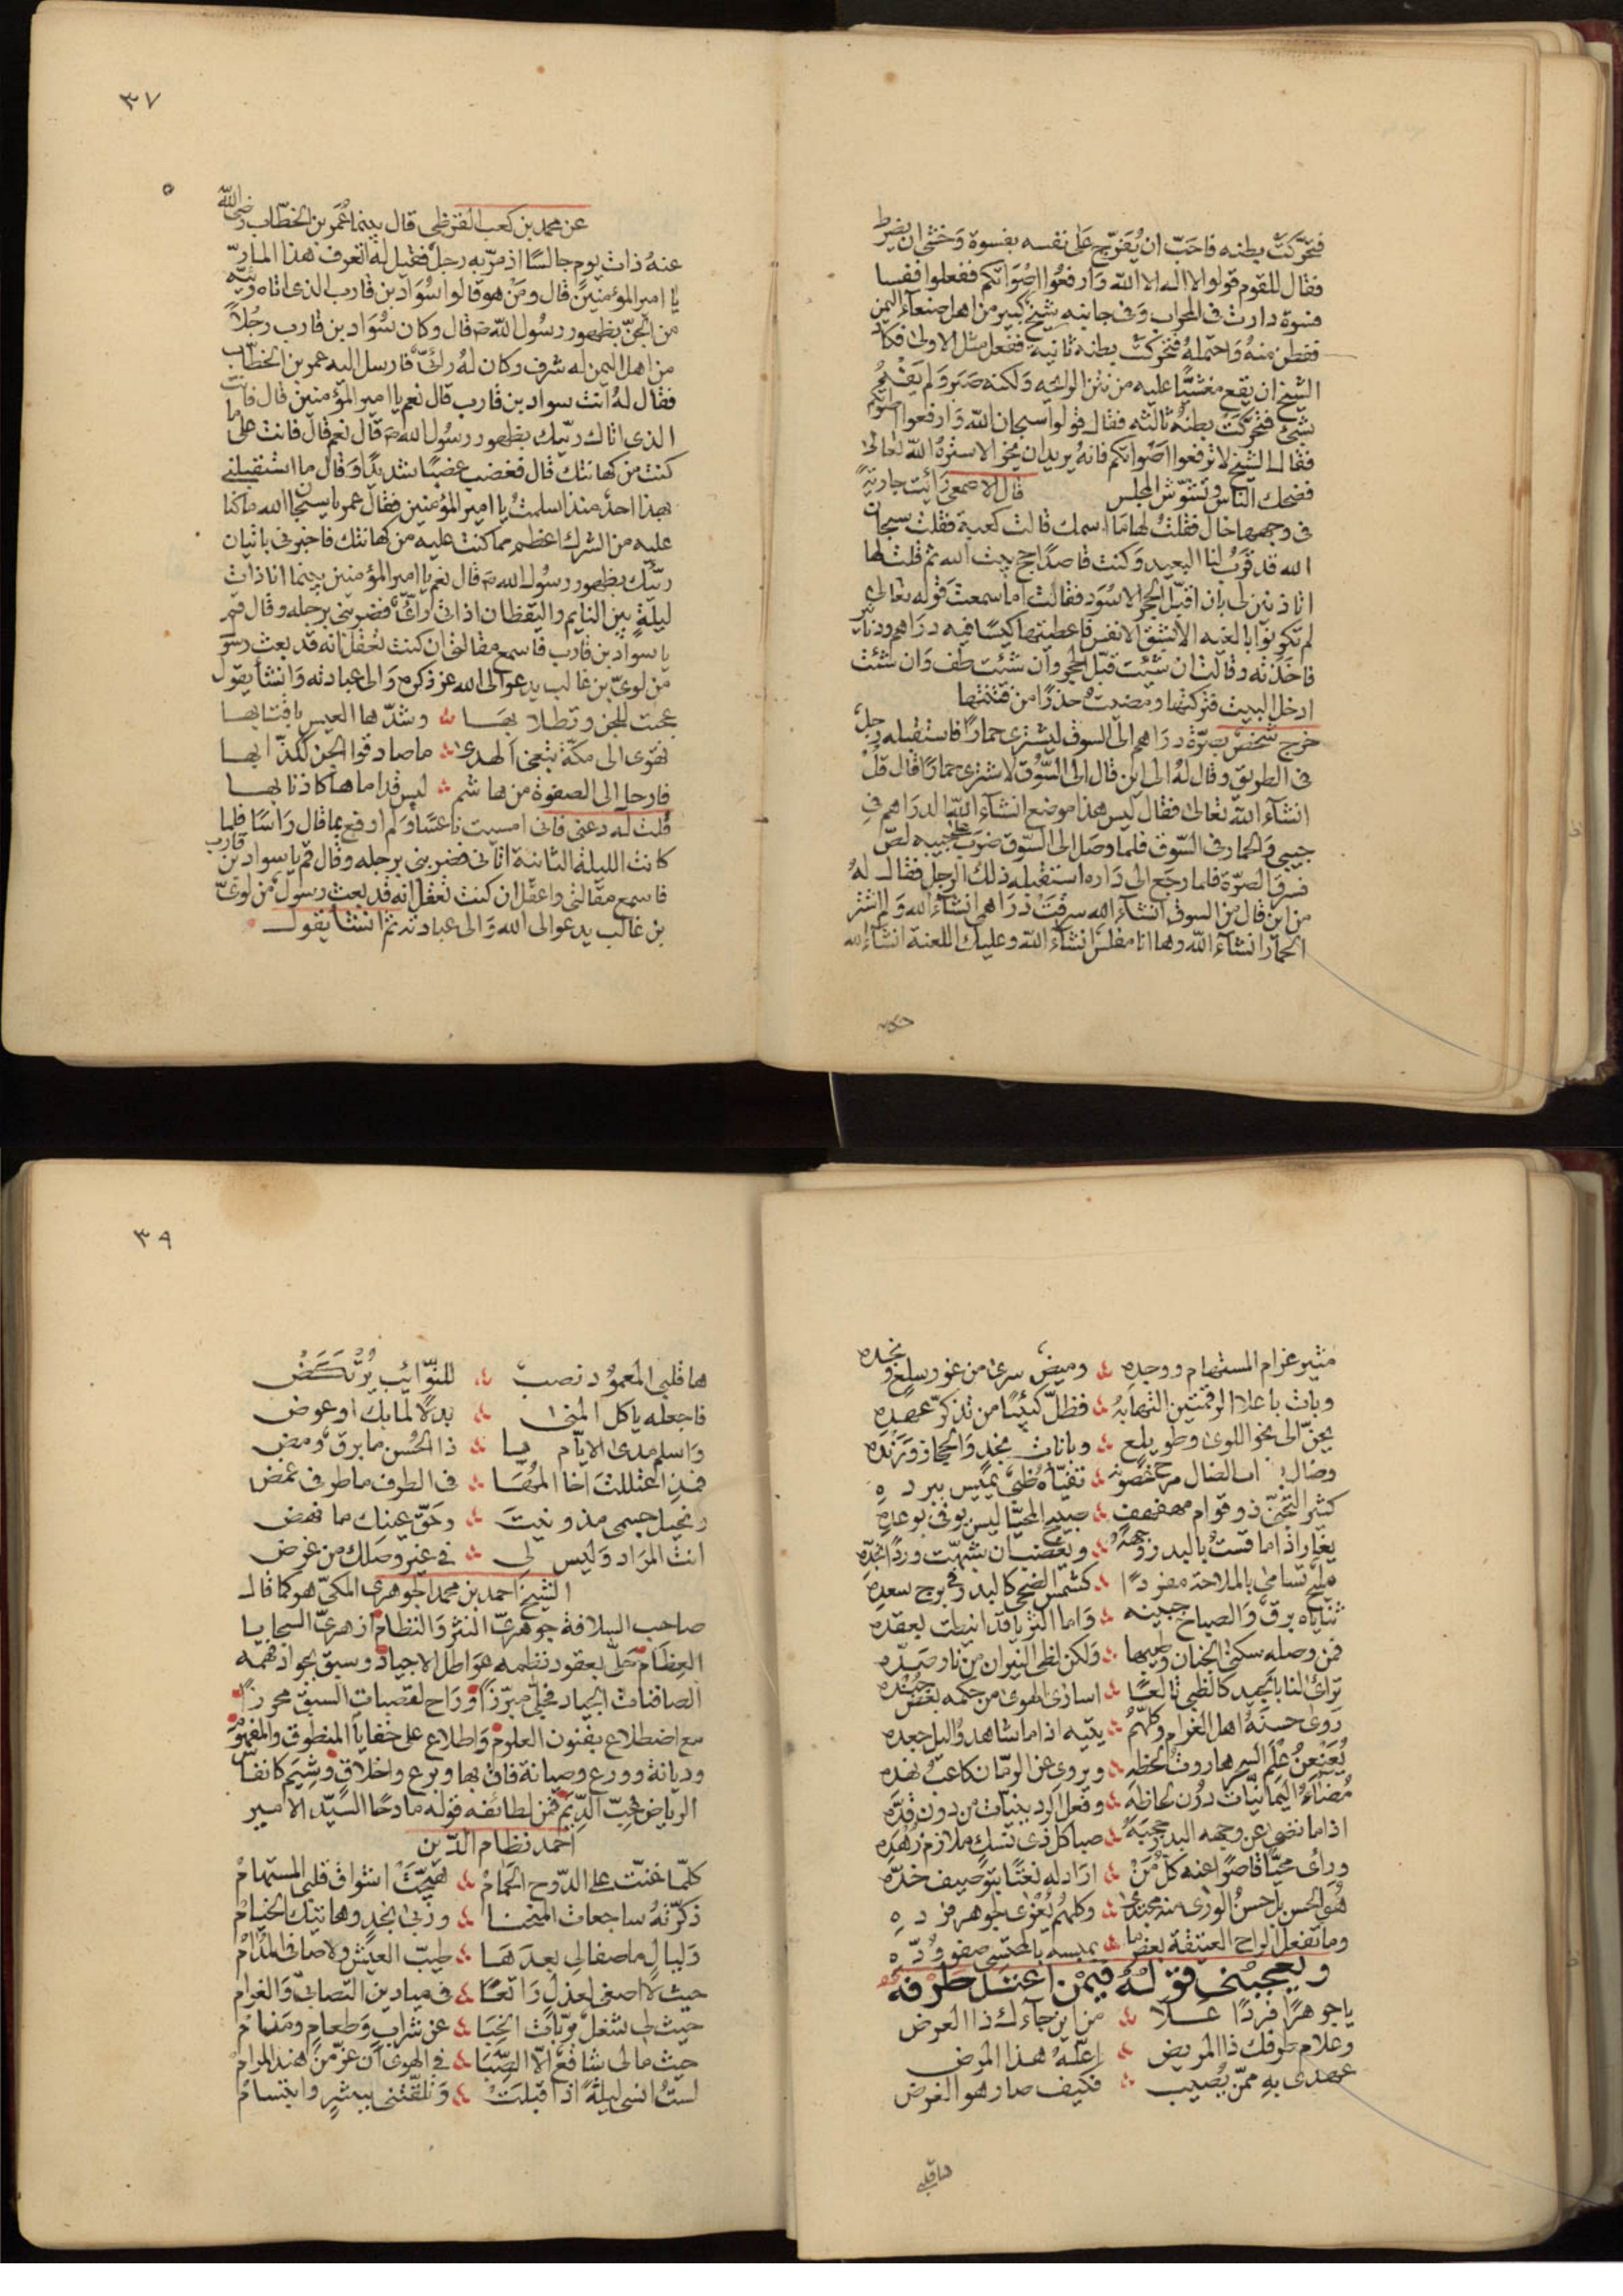 فتحركت بطنه فاحب ان يفرج على نفسه بفسوة وخشى ان يضرط
فقال للقوم قولوا لا اله الا الله وارفعوا اصواتكم ففعلوا ففسا
فسوة دارت فى المحراب وفى جانبه شيخ كبير من اهل صنعاء اليمن
ففطن منه واحتمله فتحركت بطنه ثانية ففعل مثل الاولى فكاد
الشيخ ان يقع مغشيا عليه من نتن الرائحه ولكنه صبر ولم يفه
بشئ فتحركت بطنه ثالثه فقال قولوا سبحان الله وارفعوا اصواتكم
فقال الشيخ لا ترفعوا اصواتكم فانه يريد ان يخرا لا ستره الله تعالى
فضحك الناس وتشوش المجلس قال الاصمعى رأيت جارية
فى وجهها خال فقلت لها ما اسمك قالت كعبة فقلت سبحان
الله قد قرب لنا البعيد وكنت قاصدا حج بيت الله ثم قلت لها
اتاذنين لى بان اقبل الحجر الاسود فقالت اما سمعت قوله تعالى
لم تكونوا بالغيه الا بشق الانفس فاعطيتها كيسا فيه دراهم ودنانير
فاخذته وقالت ان شئت قبل الحجر وان شئت طف وان شئت
ادخل البيت فتركتها ومضيت حذرا من فتنتها
خرج شخص بصرة دراهم الى السوق ليشترى حمارا فاستقبله رجل
فى الطريق وقال له الى اين قال الى السوق لاشترى حمارا قال قل
انشاء الله تعالى فقال ليس هذا موضع انشاء الله الدراهم فى
جيبى والحمار فى السوق فلما وصل الى السوق ضرب على جيبه لص
فسرق الصرة فلما رجع الى داره استقبله ذلك الرجل فقال له
من اين قال من السوق انشاء الله سرقت دراهمى انشاء الله ولم اشتر
الحمار انشاء الله وها انا مفلس انشاء الله وعليك اللعنة انشاء الله
٣٧
عن محمد بن كعب القرظى قال بينما عمر بن الخطاب رضى الله
عنه ذات يوم جالسا اذ مر به رجل فقيل له اتعرف هذا المار
يا امير المؤمنين قال ومن هو قالوا سواد بن قارب الذى اتاه رئيه
من الجن بظهور رسول الله ص قال وكان سواد بن قارب رجلا
من اهل اليمن له شرف وكان له رئى فارسل اليه عمر بن الخطاب
فقال له انت سواد بن قارب قال نعم يا امير المؤمنين قال فانت
الذى اتاك ربيك بظهور رسول الله ص قال نعم قال فانت على ما
كنت من كهانتك قال فغضب غضبا شديدا وقال ما استقبلنى
بهذا احد منذ اسلمت يا امير المؤمنين فقال عمر يا سبحان الله ما كنا
عليه من الشرك اعظم مما كنت عليه من كهانتك فاخبرنى باتيان
ربيك بظهور رسول الله ص قال نعم يا امير المؤمنين بينما انا ذات
ليلة بين النايم واليقظان اذ اتانى رئى فضربنى برجله وقال قم
يا سواد بن قارب فاسمع مقالتى ان كنت تعقل انه قد بعث رسول
من لوى بن غالب يدعو الى الله عز ذكره والى عبادته وانشأ يقول
عجبت للجن وتطلابها وشدها العيس باقتابها
تهوى الى مكة تبغى الهدى ما صادقوا الجن ككذابها
فارحل الى الصفوة من هاشم ليس قداماها كاذنابها
قلت له دعنى فانى امسيت ناعسا ولم ارفع بما قال راسا فلما
كانت الليلة الثانية اتانى فضربنى برجله وقال قم يا سواد بن قارب
فاسمع مقالتى واعقل ان كنت تعقل انه قد بعث رسول من لوى
بن غالب يدعو الى الله والى عبادته ثم انشأ يقول
مثير غرام المستهام ووجده وميض سرى من غور سلع ونجده
وبات باعلا الرقمتين التهابه فظل كئيبا من تذكر عهده
يحن الى نحو اللوى وطويلع وبانات نجد والحجاز ورنده
وضال الضال مرخ غصونه تفياه ظبى يميس ببرده
كثير التجنى ذو قوام مهفهف صبيح المحيا ليس يوفى بوعده
يغار اذا ما قست بالبدر وجهه ويغضب ان شبهت وردا بخده
مليح تسامى بالملاحة مفردا كشمس الضحى كالبدر فى برج سعده
ثناياه برق والصباح جبينه واما الثريا قد انيطت بعقده
فمن وصله سكنى الجنان وطيبها ولكن لظى النيران من نار صده
تراءى لنا بالجيد كالظبى تالعا اسارى الهوى من حكمه بعض جنده
روى حسنه اهل الغرام وكلهم يتيه اذا ما شاهدوا ليل جعده
يعنعن علم السحر هاروت لحظه ويروى عن الرمان كاعب نهده
مضاء اليمانيات دون لحاظه وفعل الردينيات من دون قده
اذا ما نضى عن وجهه البدر حجبه صبا كل ذى نسك ملازم زهده
ورأى محيا قاصرا عنه كل من اراد له نعتا بتوصيف خده
هو الحسن بل حسن الورى منه مجتدى وكلهم يعزى لجوهر فرده
وما تفعل الراح العتيقة بعض ما بمبسمه بالمحتسى صفو وده
ويعجبنى قوله فيمن اعتل طرفه
يا جوهرا فردا علا من اين جاءك ذا العرض
وعلام طرفك ذا المريض اعله هذا المرض
عهدى به ممن يصيب فكيف صار هو الغرض
ها قلبى
٣٩
ها قلبى المعمود نصب للنوائب يرتكض
فاجعله يا كل المنى بدلا لما بك او عوض
واسلم مدى الايام يا ذا الحسن ما برق ومض
فمذ اعتللت اخا المها فى الطرف ما طرفى غمض
ونحيل جسمى مذ ونيت وحق عينك ما نهض
انت المراد وليس لى فى غير وصلك من غرض
الشيخ احمد بن محمد الجوهرى المكى هو كما قال
صاحب السلافة جوهرى النثر والنظام ازهرى السجايا
العظام حلى بعقود نظمه عواطل الاجياد وسبق بجواد فهمه
الصافنات الجياد فجلى مبرزا وراح لقصبات السبق محرزا
مع اضطلاع بفنون العلوم واطلاع على خفايا المنطوق والمفهوم
وديانة وورع وصيانة فاق بها وبرع واخلاق وشيم كانفاس
الرياض غب الديم فمن لطائفه قوله مادحا السيد الامير
احمد نظام الدين
كلما غنت على الدوح الحمام هيجت اشواق قلبى المستهام
ذكرته ساجعات المنحنا وربى نجد وهاتيك الخيام
وليال ما صفا لى بعدها طيب العيش ولا صافى المدام
حيث لا اصغى لعذل راتعا فى ميادين التصابى والغرام
حيث لى شغل بربات الخبا عن شراب وطعام ومنام
حيث مالى شافع الا الصبا فى الهوى ان عز من هند المرام
لست انسى ليلة اذ اقبلت وتلقتنى ببشر وابتسام